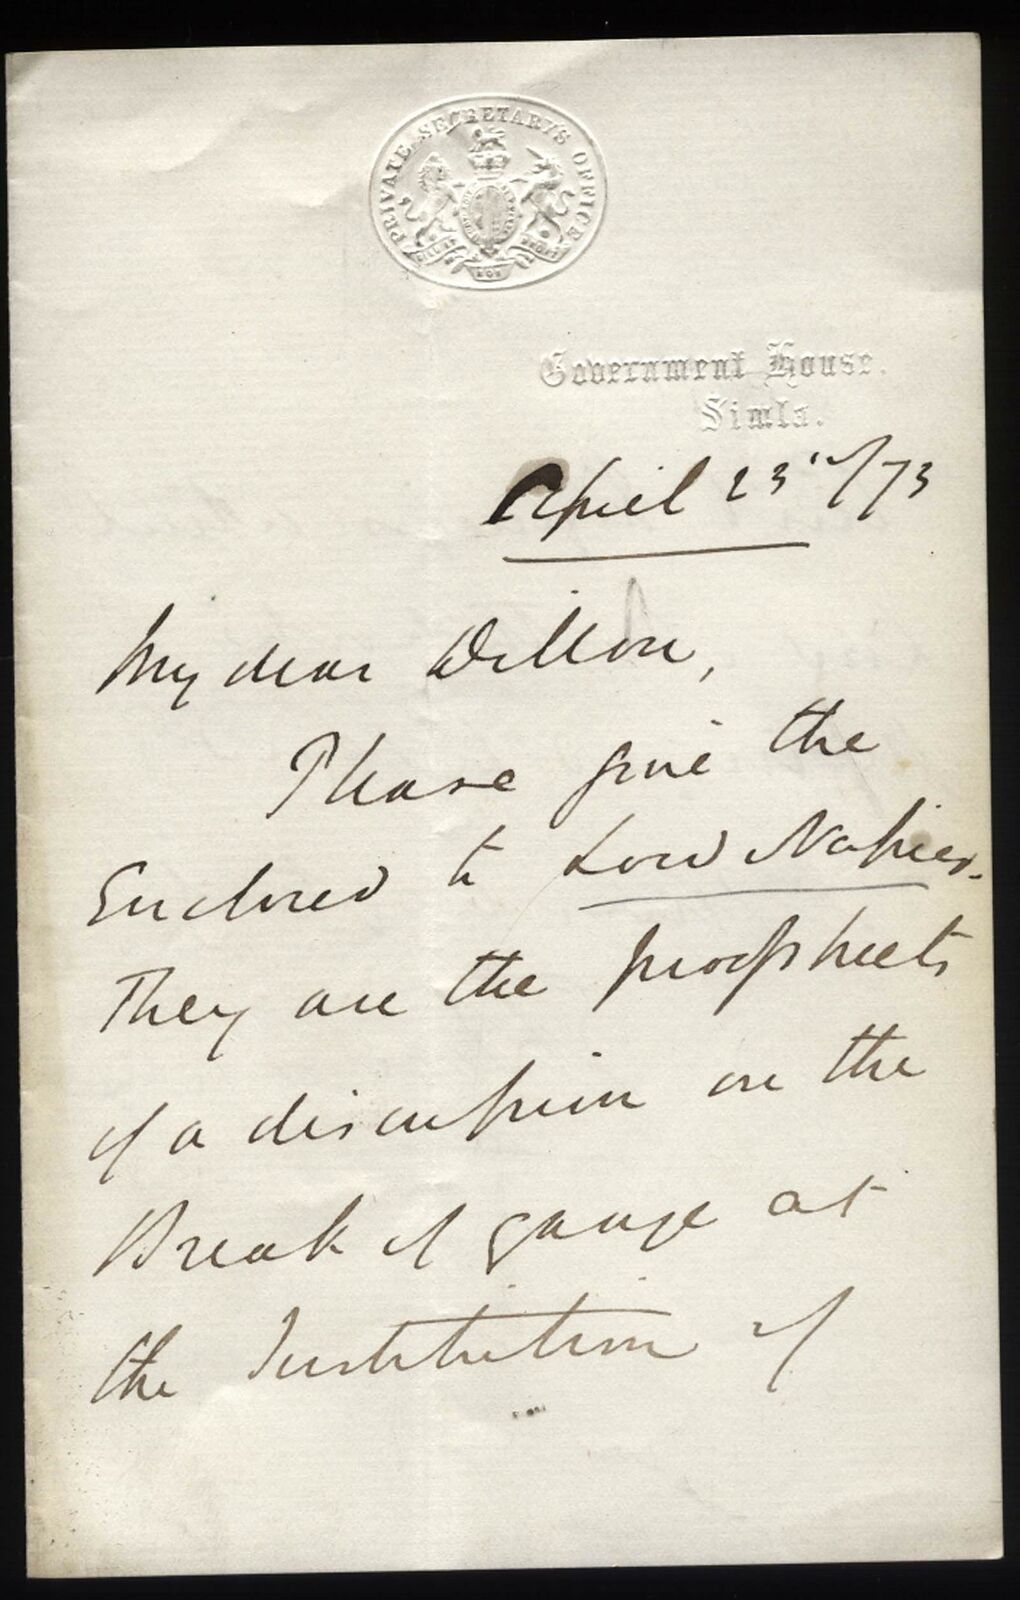 PRIVATE SECRETARY'S OFFICE
Government House.
Simla.
April 23rd/73
My dear Dillon,
Please give the
Enclosed to Lord Napier.
They are the proofsheets
of a discussion on the
Break of gauge at
the Institution of